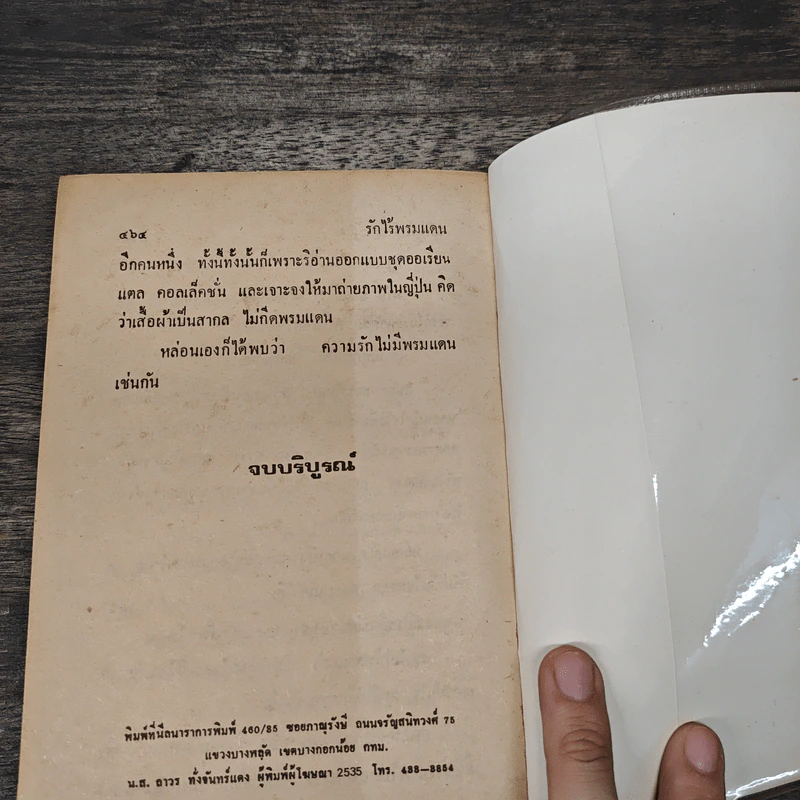 ๔๖๔ รักไร้พรมแดน
อีกคนหนึ่ง ทั้งนี้ทั้งนั้นก็เพราะริอ่านออกแบบชุดออเรียน
แตล คอลเล็คชั่น และเจาะจงให้มาถ่ายภาพในญี่ปุ่น คิด
ว่าเสื้อผ้าเป็นสากล ไม่กีดพรมแดน
หล่อนเองก็ได้พบว่า ความรักไม่มีพรมแดน
เช่นกัน
จบบริบูรณ์
พิมพ์ที่นีลนาราการพิมพ์ 460/85 ซอยภาณุรังษี ถนนจรัญสนิทวงศ์ 75
แขวงบางพลัด เขตบางกอกน้อย กทม.
น.ส. ถาวร ทั่งจันทร์แดง ผู้พิมพ์ผู้โฆษณา 2535 โทร. 433-8854